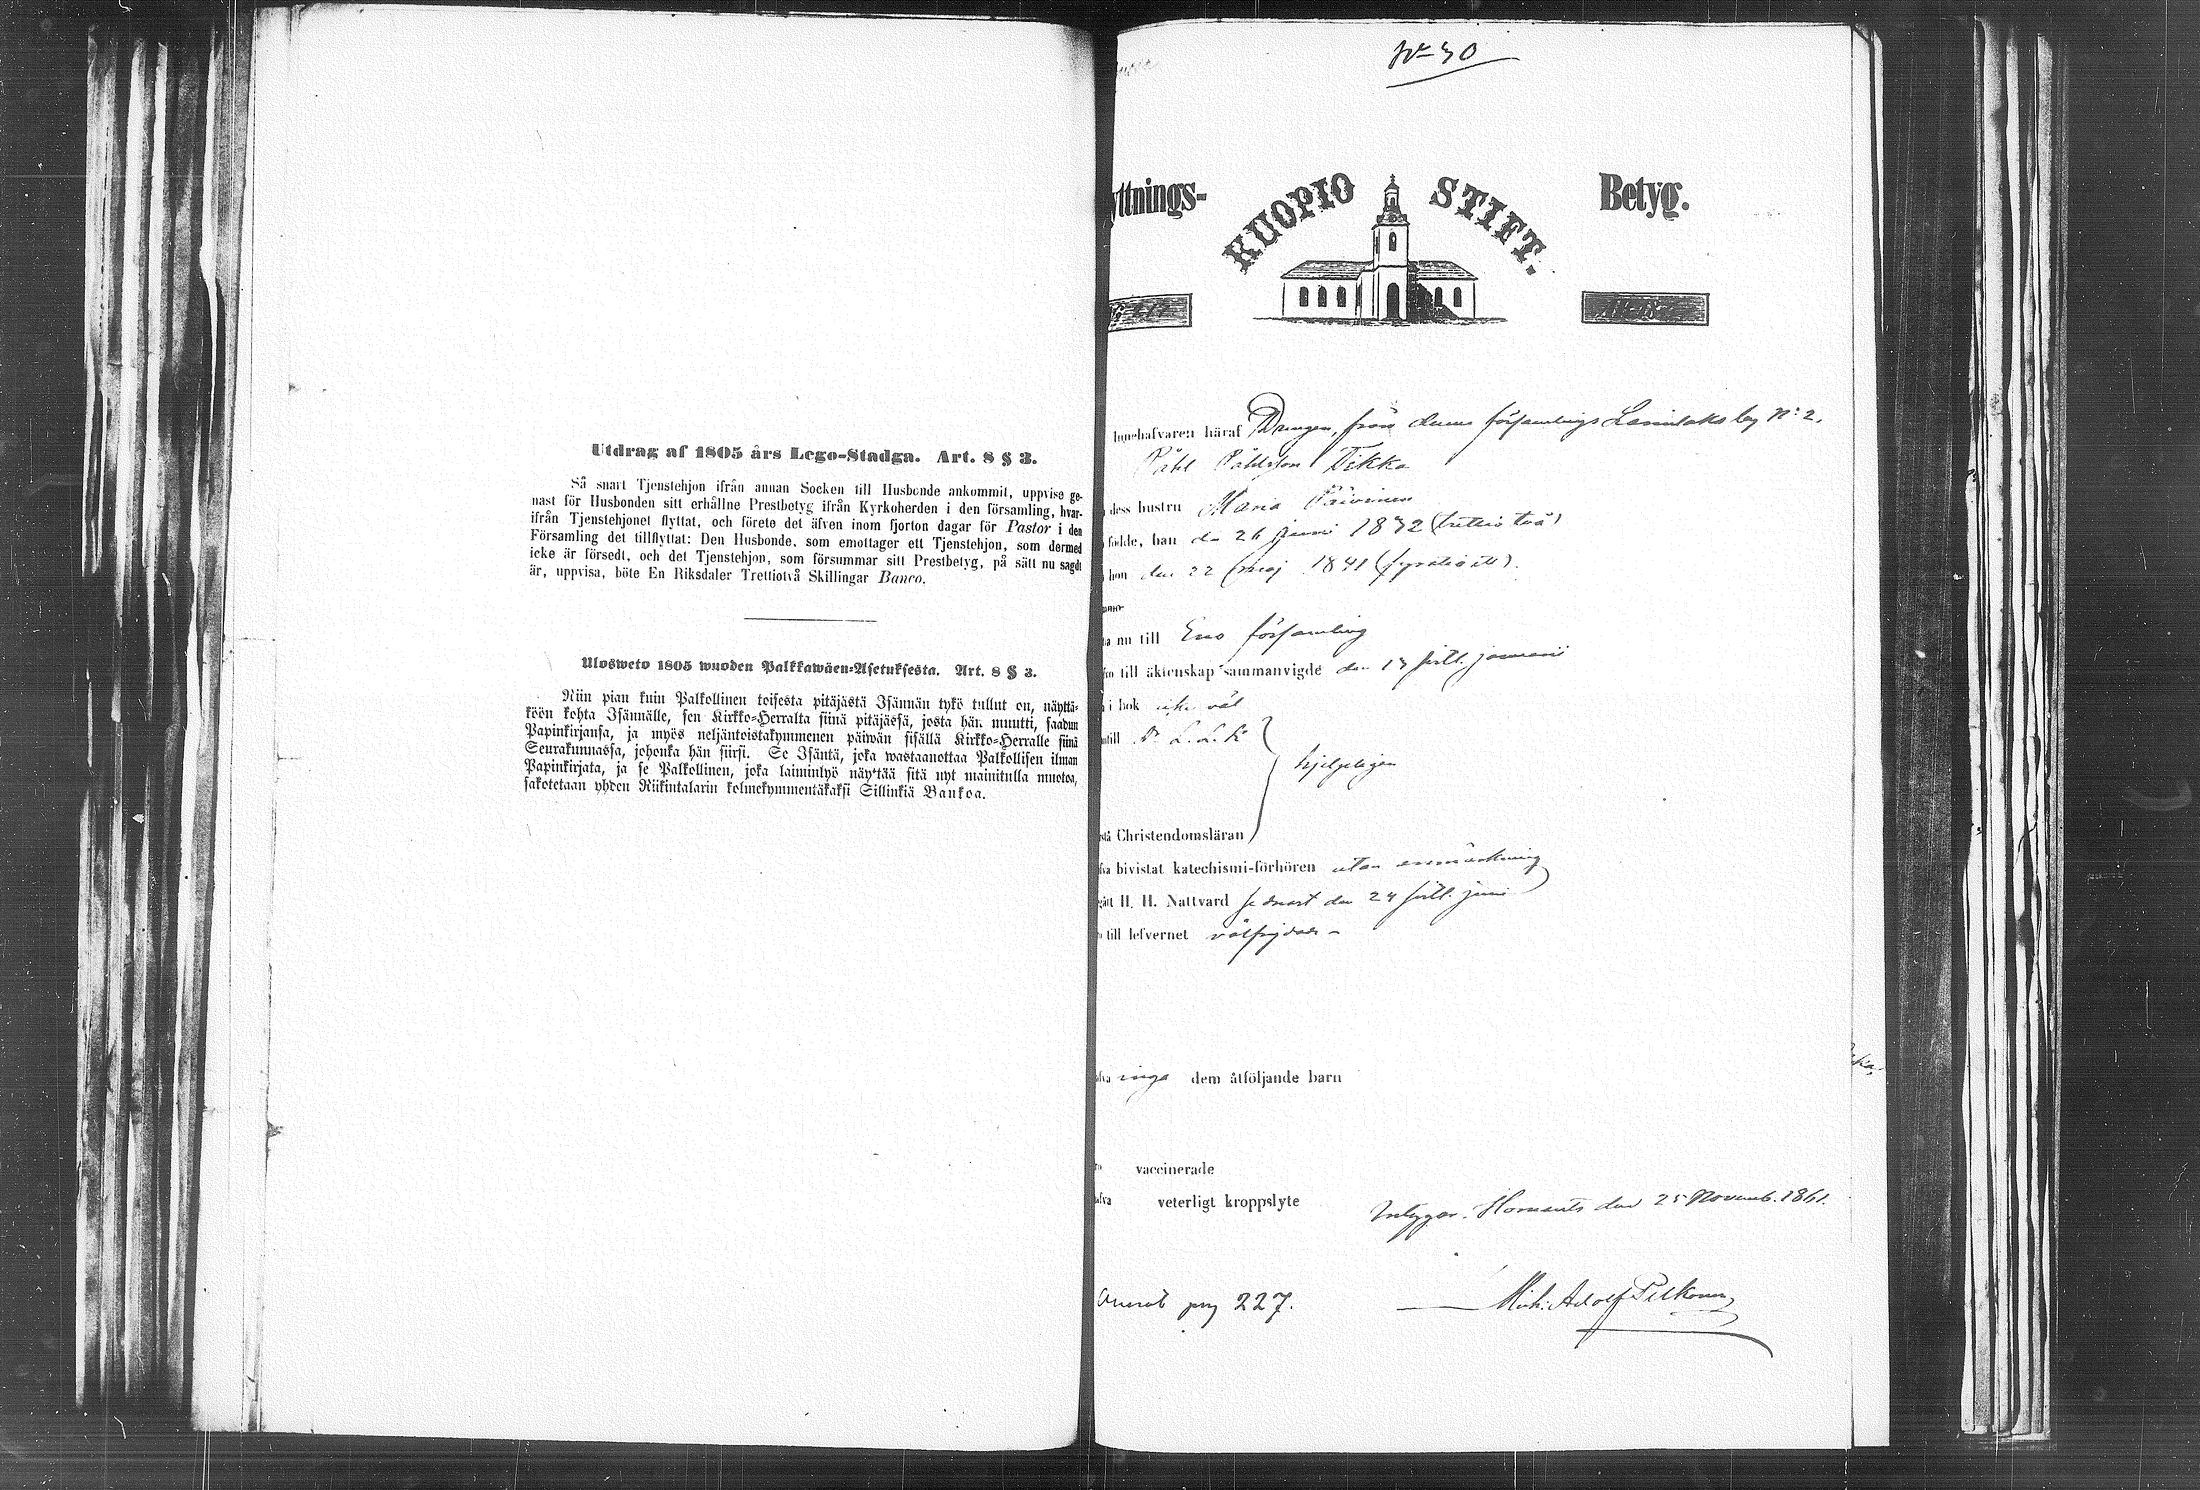 Utdrag af 1805 års Lego-Stadga. Art. 8 § 3.
Så snart Tjenstehjon ifrån annan Socken till Husbonde ankommit, uppvise ge-
nast för Husbonden sitt erhållne Prestbetyg ifrån Kyrkoherden i den församling, hvar-
ifrån Tjenstehjonet flyttat, och förete det äfven inom fjorton dagar för Pastor i den
Församling det tillflyttat: Den Husbonde, som emottager ett Tjenstehjon, som dermed
icke är försedt, och det Tjenstehjon, som försummar sitt Prestbetyg, på sätt nu sagdt
är, uppvisa, böte En Riksdaler Trettiotvå Skillingar Banco.
Ulosweto 1805 wuoden Palkkawäen-Asetuksesta. Art. 8 § 3.
Niin pian kuin Palkollinen toisesta pitäjästä Isännän tykö tullut on, näyttä-
köön kohta Isännälle, sen Kirkko-Herralta siinä pitäjässä, josta hän muutti, saadun
Papinkirjansa, ja myös neljäntoistakymmenen päiwän sisällä Kirkko-Herralle siinä
Seurakunnassa, johonka hän siirsi. Se Isäntä, joka wastaanottaa Palkollisen ilman
Papinkirjata, ja se Palkollinen, joka laiminlyö näyttää sitä nyt mainitulla muotoa,
sakotetaan yhden Riikintalarin kolmekymmentäkaksi Sillinkiä Bankoa.
N° 30
yttnings- KUOPIO STIFT. Betyg.
Innehafvaren häraf Drängen, från denna församlings by N:o 2,
Påhl Påhlsson Tikka
dess hustru Maria Päivinen
födde, han den 26 Juni 1832 (trettio två)
hon den 22 maj 1841 (fyratio ett).
nu till Eno församling
till äktenskap sammanvigde den 13 sistl. januarii
i bok icke väl
till D:r L. L. K
hjelpeligen
stå Christendomsläran
bivistat katechismi-förhören utan anmärkning
gått H. H. Nattvard senast den 24 sistl. juni
till lefvernet välfrejdade
inga dem åtföljande barn
vaccinerade
veterligt kroppslyte
Intygar. Ilomants den 25 Novemb. 1861.
pag 227.
Mich: Adolf Telkonen